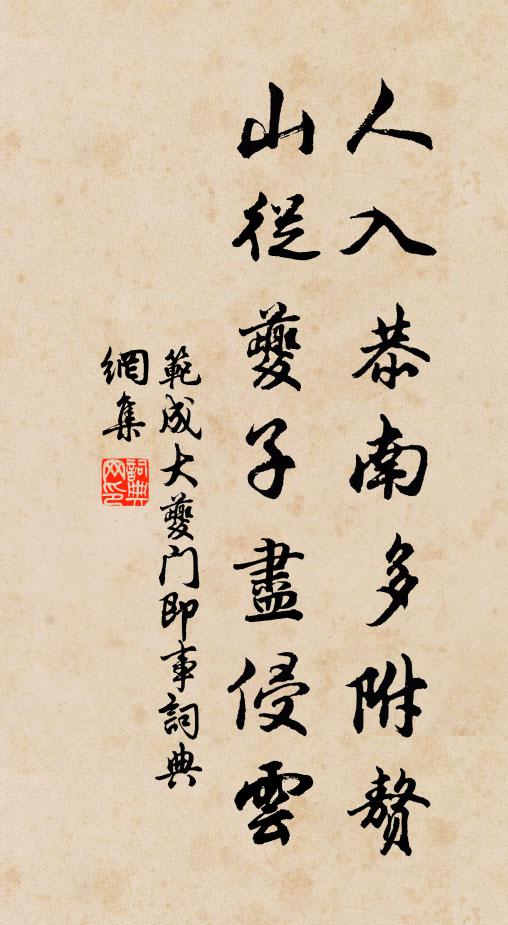 人入恭南多附贅
山從夔子盡侵雲
範成大夔门即事詞典
網集
詞典网印